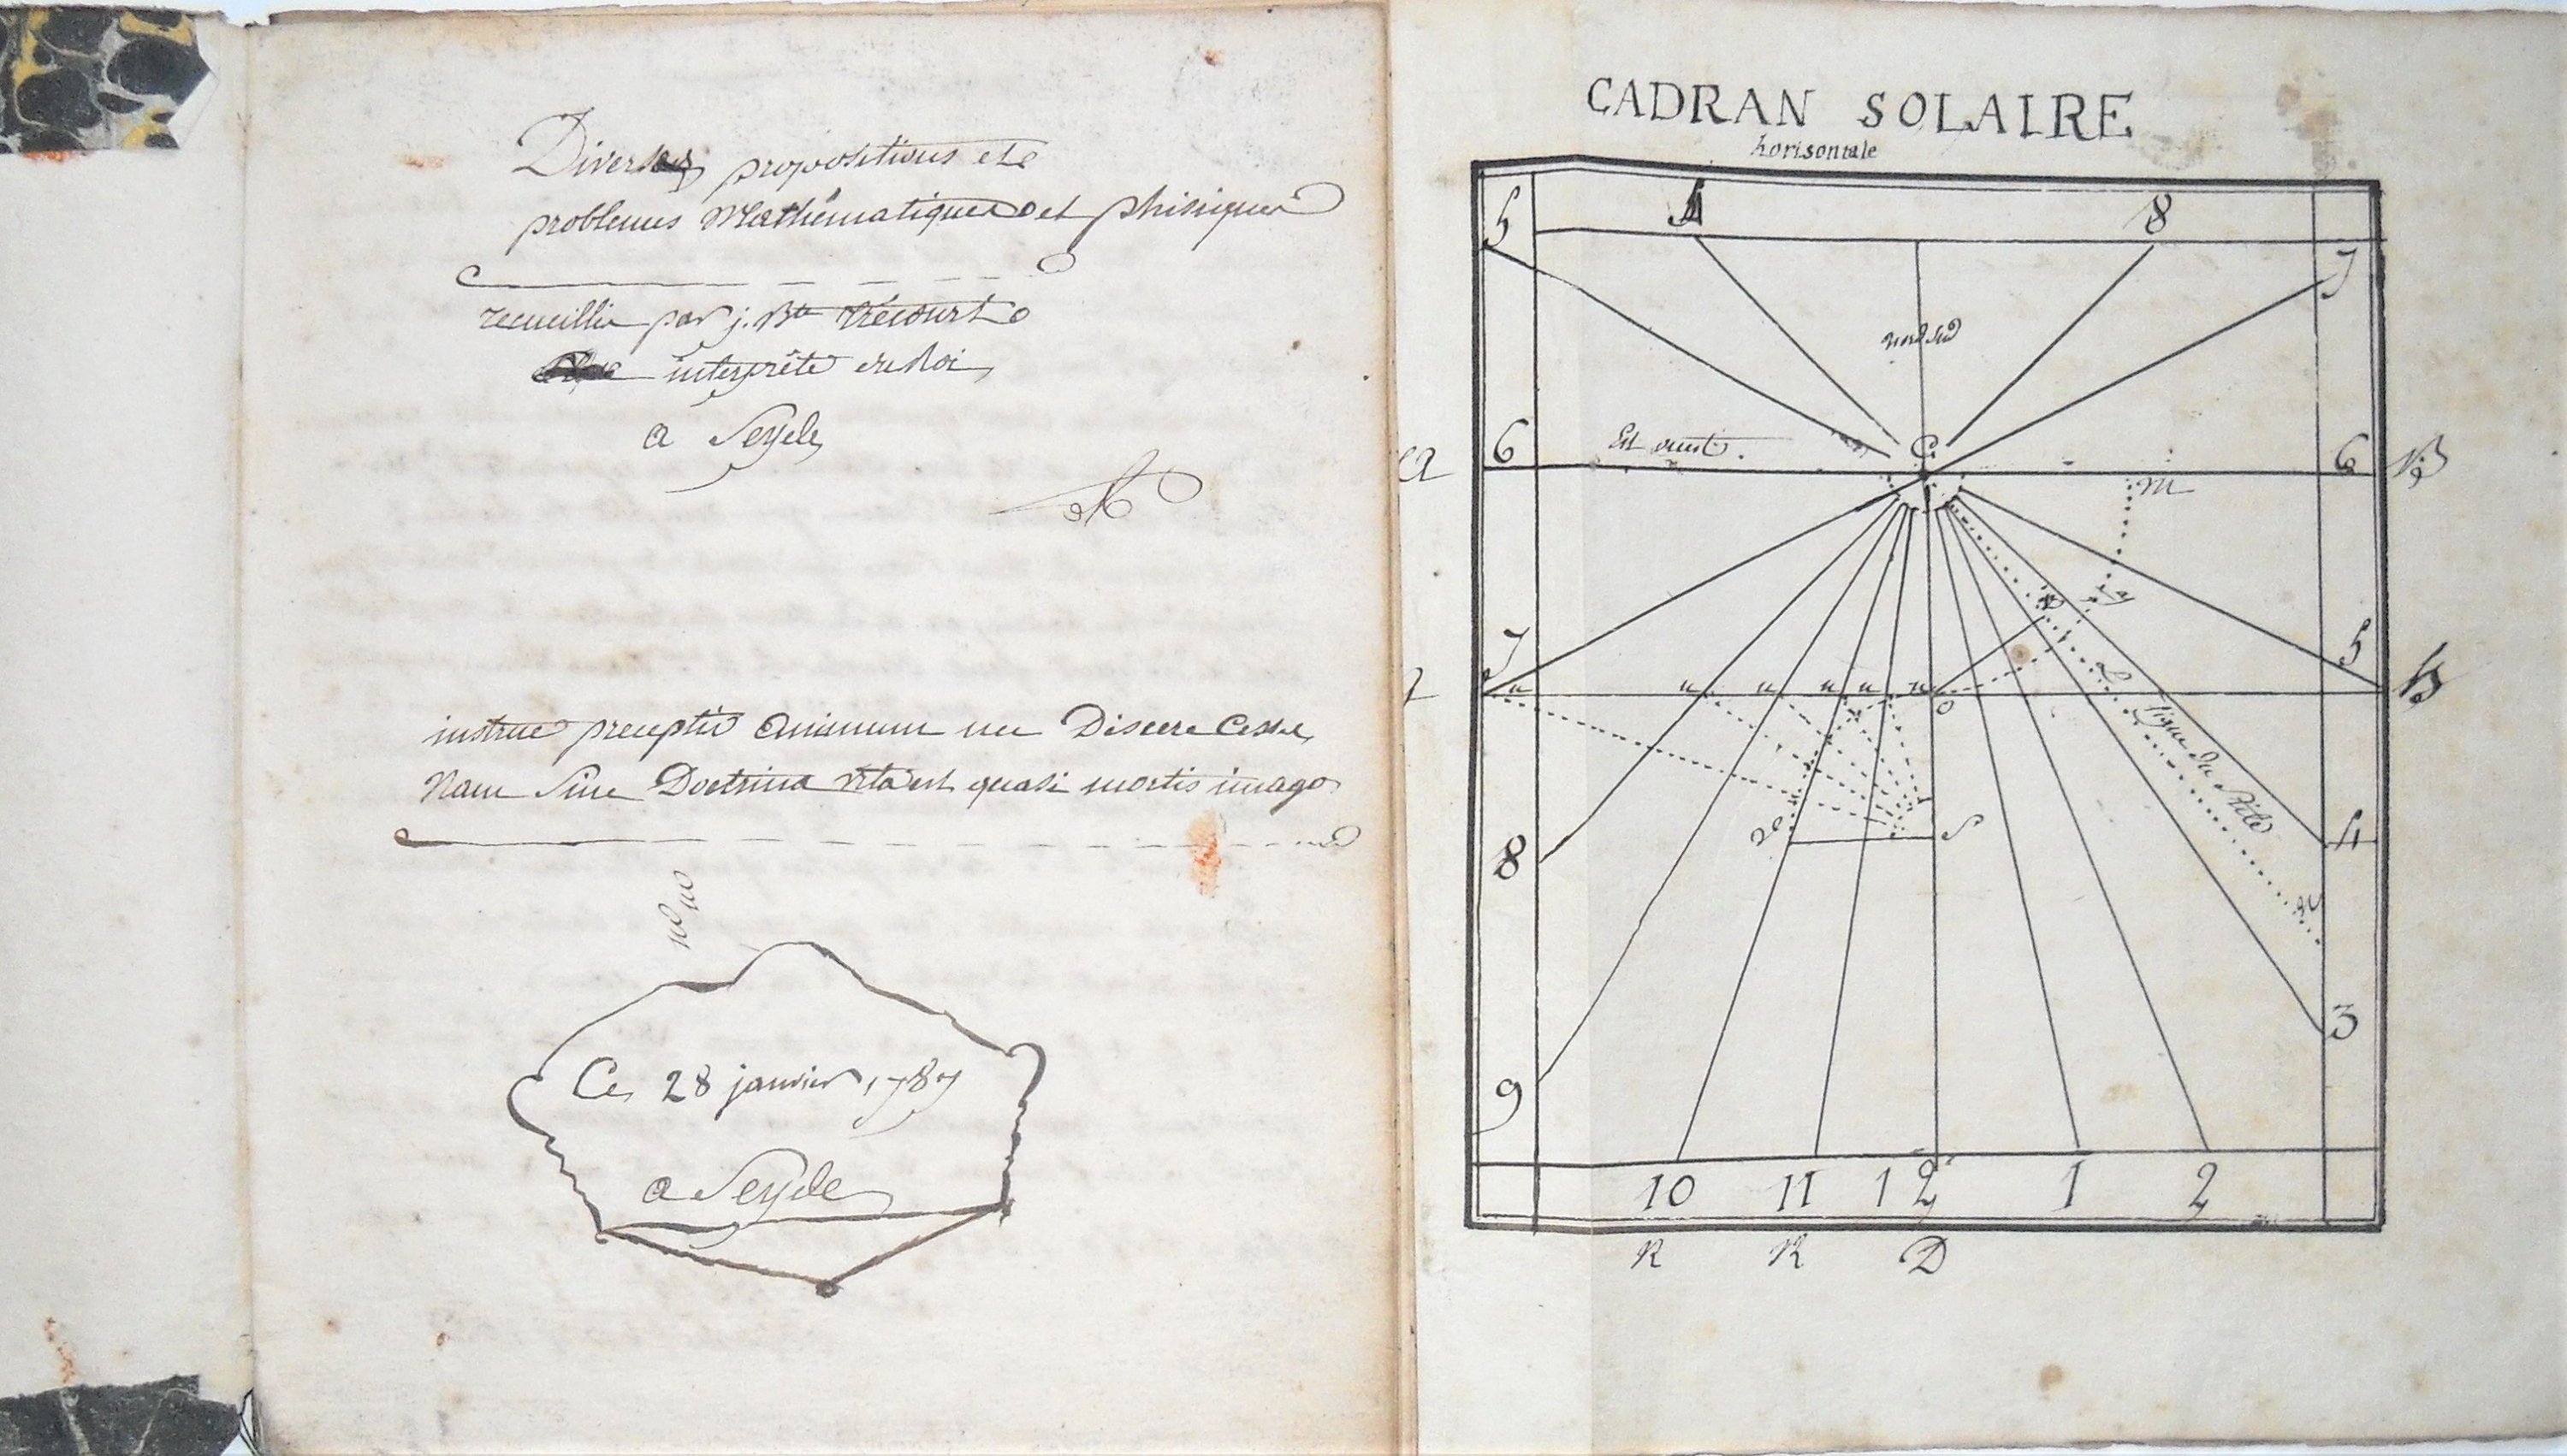 Diverses propositions et
problemes Mathématiques et phisiques
recueillie par j. Bte Trécourt
interprête du Roi
a Seyde
instrue preceptis animum nec Discere Cesses
Nam Sine Doctrina vita est quasi mortis imago
Ce 28 janvier 1787
a Seyde
CADRAN SOLAIRE
horisontale
5 4 8 7
nord Sud
C
a 6 Est ouest. 6 B
m
7 5 h
u u u u u u o
L
ligne du Stile
S
8 4
9 3
10 11 12 1 2
R R D